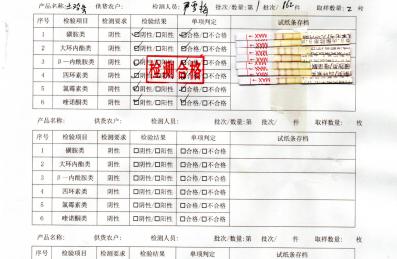 产品名称: 供货农户: 检测人员: 批次/数量:第1批次/ 件 取样数量:2枚
序号 检验项目 检测要求 检验结果 单项判定 试纸条存档
1 磺胺类 阴性 ☑阴性/□阳性 ☑合格/□不合格
2 大环内酯类 阴性 ☑阴性/□阳性 ☑合格/□不合格
3 β-内酰胺类 阴性 ☑阴性/□阳性 ☑合格/□不合格
4 四环素类 阴性 ☑阴性/□阳性 ☑合格/□不合格
5 氯霉素类 阴性 ☑阴性/□阳性 ☑合格/□不合格
6 喹诺酮类 阴性 ☑阴性/□阳性 ☑合格/□不合格
检测合格
序号 检验项目 检测要求 检验结果 单项判定 试纸条存档
1 磺胺类 阴性 □阴性/□阳性 □合格/□不合格
2 大环内酯类 阴性 □阴性/□阳性 □合格/□不合格
3 β-内酰胺类 阴性 □阴性/□阳性 □合格/□不合格
4 四环素类 阴性 □阴性/□阳性 □合格/□不合格
5 氯霉素类 阴性 □阴性/□阳性 □合格/□不合格
6 喹诺酮类 阴性 □阴性/□阳性 □合格/□不合格
产品名称: 供货农户: 检测人员: 批次/数量:第 批次/ 件 取样数量: 枚
序号 检验项目 检测要求 检验结果 单项判定 试纸条存档